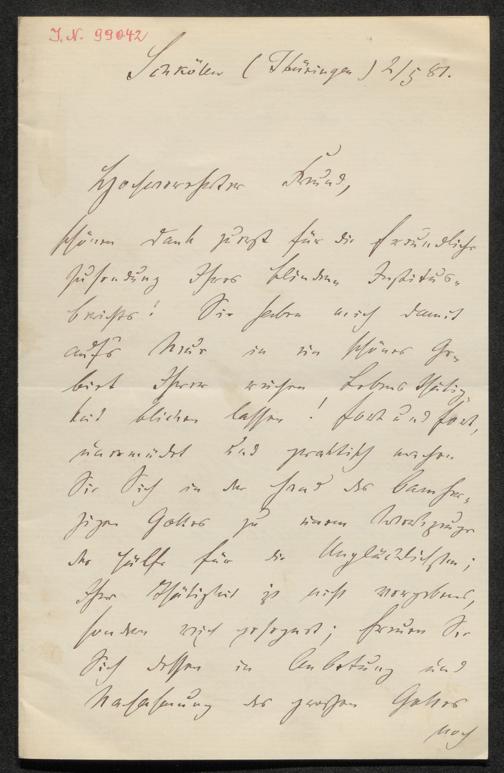 I. N. 99042
Schkölen (Thüringen) 2/5 81.
Hochverehrter Freund,
schönen Dank zuerst für die freundliche
Zusendung Ihres blinden Institus-
berichtes! Sie haben mich damit
aufs Neue in ein schönes Ge-
biet Ihrer reichen Lebensthätig-
keit blicken lassen! Fort und fort,
unermüdet und praktisch machen
Sie Sich in der Hand des barmher-
zigen Gottes zu einem Werkzeuge
der Hülfe für die Unglücklichsten;
Ihre Thätigkeit ist nicht vergebens,
sondern reich gesegnet; freuen Sie
Sich dessen in Anbetung und
Nachahmung des grossen Gottes
noch